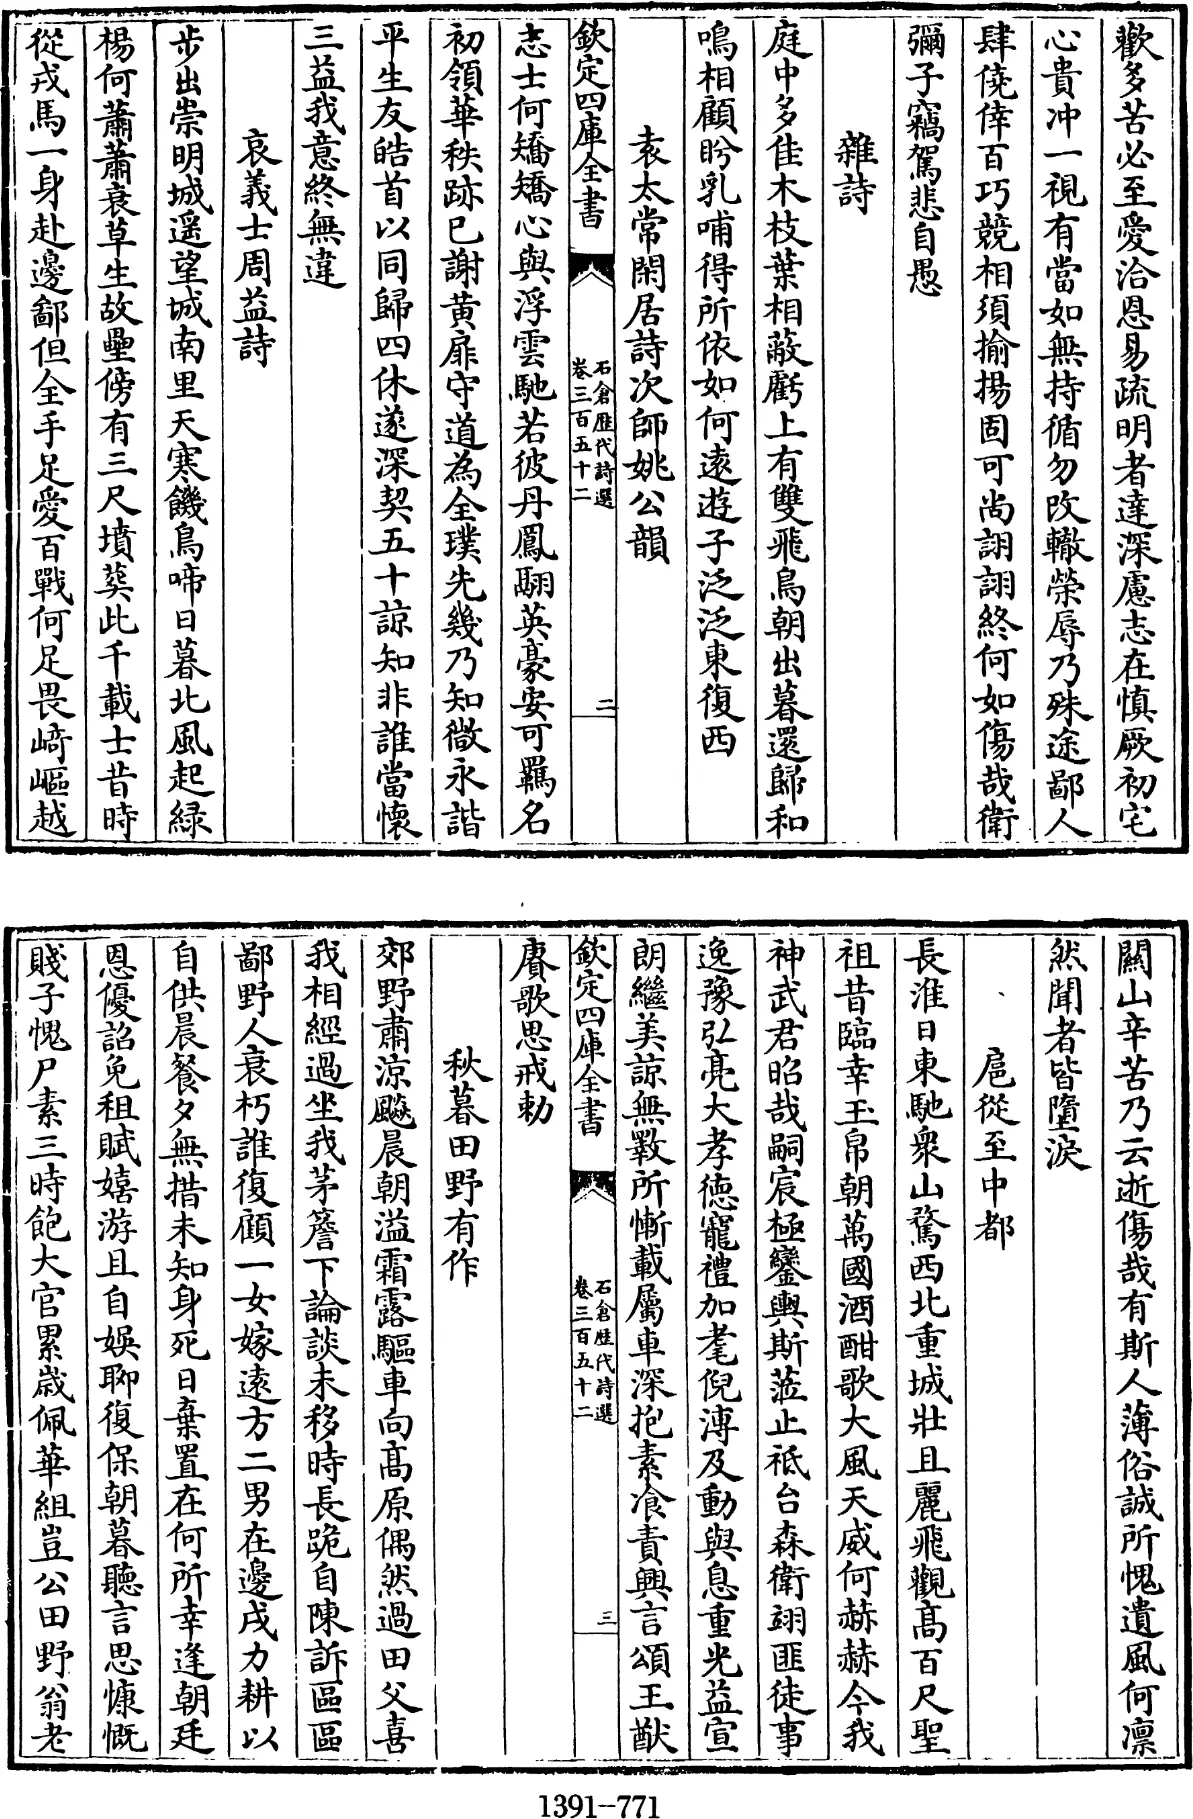 歡多苦必至愛洽恩易疏明者達深慮志在慎厥初宅
心貴冲一視有當如無持循勿改轍榮辱乃殊途鄙人
肆僥倖百巧競相須揄揚固可尚詡詡終何如傷哉衛
彌子竊駕悲自愚
雜詩
庭中多佳木枝葉相蔽虧上有雙飛鳥朝出暮還歸和
鳴相顧盼乳哺得所依如何遠遊子泛泛東復西
袁太常閑居詩次師姚公韻
欽定四庫全書
石倉歴代詩選
卷三百五十二
二
志士何矯矯心與浮雲馳若彼丹鳳翮英豪安可羈名
初領華秩跡已謝黄扉守道為全璞先幾乃知微永諧
平生友皓首以同歸四休遂深契五十諒知非誰當懷
三益我意終無違
哀義士周益詩
步出崇明城遥望城南里天寒饑鳥啼日暮北風起緑
楊何蕭蕭衰草生故壘傍有三尺墳葬此千載士昔時
從戎馬一身赴邊鄙但全手足愛百戰何足畏崎嶇越
關山辛苦乃云逝傷哉有斯人薄俗誠所愧遺風何凛
然聞者皆墮淚
扈從至中都
長淮日東馳衆山騖西北重城壯且麗飛觀髙百尺聖
祖昔臨幸玉帛朝萬國酒酣歌大風天威何赫赫今我
神武君昭哉嗣宸極鑾輿斯蒞止祗台森衛翊匪徒事
逸豫弘亮大孝德寵禮加耄倪溥及動與息重光益宣
朗繼美諒無斁所慚載屬車深抱素飡責興言頌王猷
欽定四庫全書
石倉歴代詩選
卷三百五十二
三
賡歌思戒勅
秋暮田野有作
郊野肅凉飈晨朝溢霜露驅車向髙原偶然過田父喜
我相經過坐我茅簷下論談未移時長跪自陳訴區區
鄙野人衰朽誰復顧一女嫁遠方二男在邊戍力耕以
自供晨餐夕無措未知身死日棄置在何所幸逢朝廷
恩優詔免租賦嬉游且自娛聊復保朝暮聽言思慷慨
賤子愧尸素三時飽大官累歳佩華組豈公田野翁老
1391--771